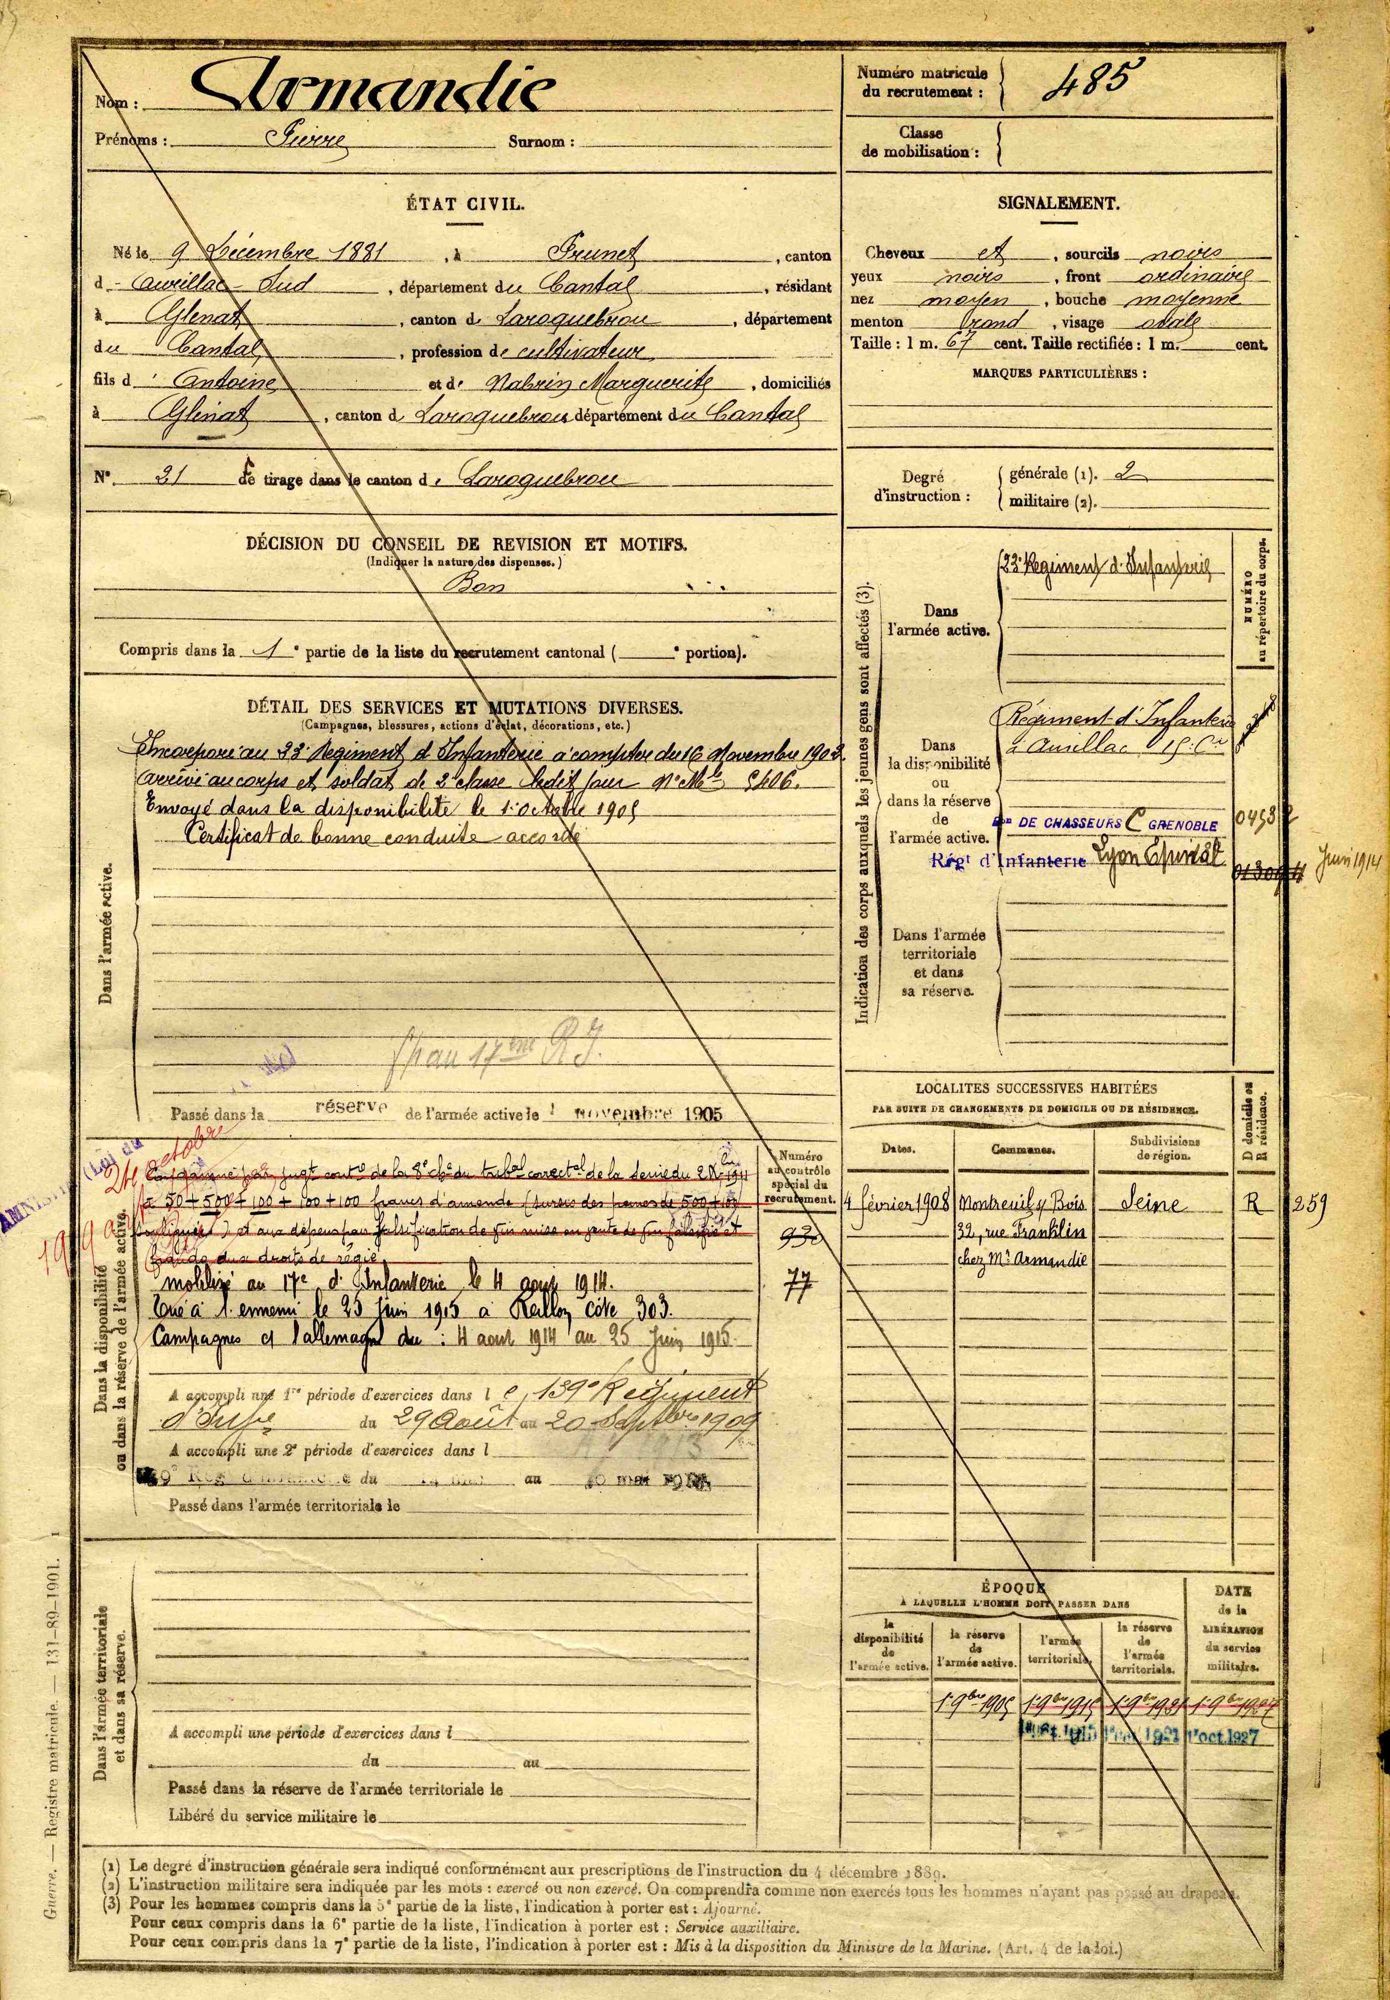 Nom : Armandie
Prénoms : Pierre Surnom :
Numéro matricule du recrutement : 485
Classe de mobilisation :
ÉTAT CIVIL.
Né le 9 Décembre 1881, à Prunet, canton
d Aurillac-Sud, département du Cantal, résidant
à Glénat, canton de Laroquebrou, département
du Cantal, profession de cultivateur
fils d' Antoine et de Nabrin Marguerite, domiciliés
à Glénat, canton d Laroquebrou département du Cantal
N° 21 de tirage dans le canton de Laroquebrou
SIGNALEMENT.
Cheveux et, sourcils noirs
yeux noirs, front ordinaire
nez moyen, bouche moyenne
menton rond, visage ovale
Taille : 1 m. 67 cent. Taille rectifiée : 1 m. cent.
MARQUES PARTICULIÈRES :
Degré d'instruction : générale (1). 2
militaire (2).
DÉCISION DU CONSEIL DE REVISION ET MOTIFS.
(Indiquer la nature des dispenses.)
Bon
Compris dans la 1e partie de la liste du recrutement cantonal ( e portion).
DÉTAIL DES SERVICES ET MUTATIONS DIVERSES.
(Campagnes, blessures, actions d'éclat, décorations, etc.)
Dans l'armée active.
Incorporé au 23e Régiment d'Infanterie à compter du 16 Novembre 1902.
arrivé au corps et soldat de 2e classe ledit jour N° Mle 5406.
Envoyé dans la disponibilité le 1er Octobre 1905
Certificat de bonne conduite accordé
au 17eme R.I.
Passé dans la réserve de l'armée active le 1 novembre 1905
Indication des corps auxquels les jeunes gens sont affectés (3).
NUMÉRO au répertoire du corps.
Dans l'armée active.
23e Régiment d'Infanterie
Dans la disponibilité ou dans la réserve de l'armée active.
Régiment d'Infanterie
à Aurillac
Bon DE CHASSEURS C GRENOBLE
Régt d'Infanterie Lyon Epinal
Juin 1914
Dans l'armée territoriale et dans sa réserve.
Dans la disponibilité ou dans la réserve de l'armée active.
AMNISTIE (Loi du
24 octobre
1919
Condamné par jugt contre de la 8e chbre du tribal correctel de la Seine du
à 50 + 500 + 100 + 100 + 100 francs d'amende (sursis des peines de 500 + 100
) et aux dépens par falsification de vin mise en vente de vin falsifié et
fraude aux droits de régie
mobilisé au 17e d'Infanterie le 4 août 1914.
Tué à l'ennemi le 25 juin 1915 à Reillon côte 303.
Campagnes ct l'allemagne du : 4 août 1914 au 25 Juin 1915.
Numéro au contrôle spécial du recrutement.
930
77
A accompli une 1re période d'exercices dans l e 139e Régiment
d'Infie du 29 Août au 20 Septbre 1909
A accompli une 2e période d'exercices dans l
du au
Passé dans l'armée territoriale le
LOCALITÉS SUCCESSIVES HABITÉES
PAR SUITE DE CHANGEMENTS DE DOMICILE OU DE RÉSIDENCE.
Dates. Communes. Subdivisions de région. D domicile ou R résidence.
4 février 1908 Montreuil s/ Bois Seine R 259
32, rue Franklin
chez Mr Armandie
Dans l'armée territoriale et dans sa réserve.
A accompli une période d'exercices dans l
du au
Passé dans la réserve de l'armée territoriale le
Libéré du service militaire le
ÉPOQUE
A LAQUELLE L'HOMME DOIT PASSER DANS
la disponibilité de l'armée active.
la réserve de l'armée active.
l'armée territoriale.
la réserve de l'armée territoriale.
DATE de la LIBÉRATION du service militaire.
1er 9bre 1905 1er 9bre 1915 1er 9bre 1921 1er 9bre 1927
1er oct. 1915 1er oct. 1921 1er oct. 1927
(1) Le degré d'instruction générale sera indiqué conformément aux prescriptions de l'instruction du 4 décembre 1889.
(2) L'instruction militaire sera indiquée par les mots : exercé ou non exercé. On comprendra comme non exercés tous les hommes n'ayant pas passé au drapeau.
(3) Pour les hommes compris dans la 5e partie de la liste, l'indication à porter est : Ajourné.
Pour ceux compris dans la 6e partie de la liste, l'indication à porter est : Service auxiliaire.
Pour ceux compris dans la 7e partie de la liste, l'indication à porter est : Mis à la disposition du Ministre de la Marine. (Art. 4 de la loi.)
Guerre. — Registre matricule. — 131-89-1901. 1